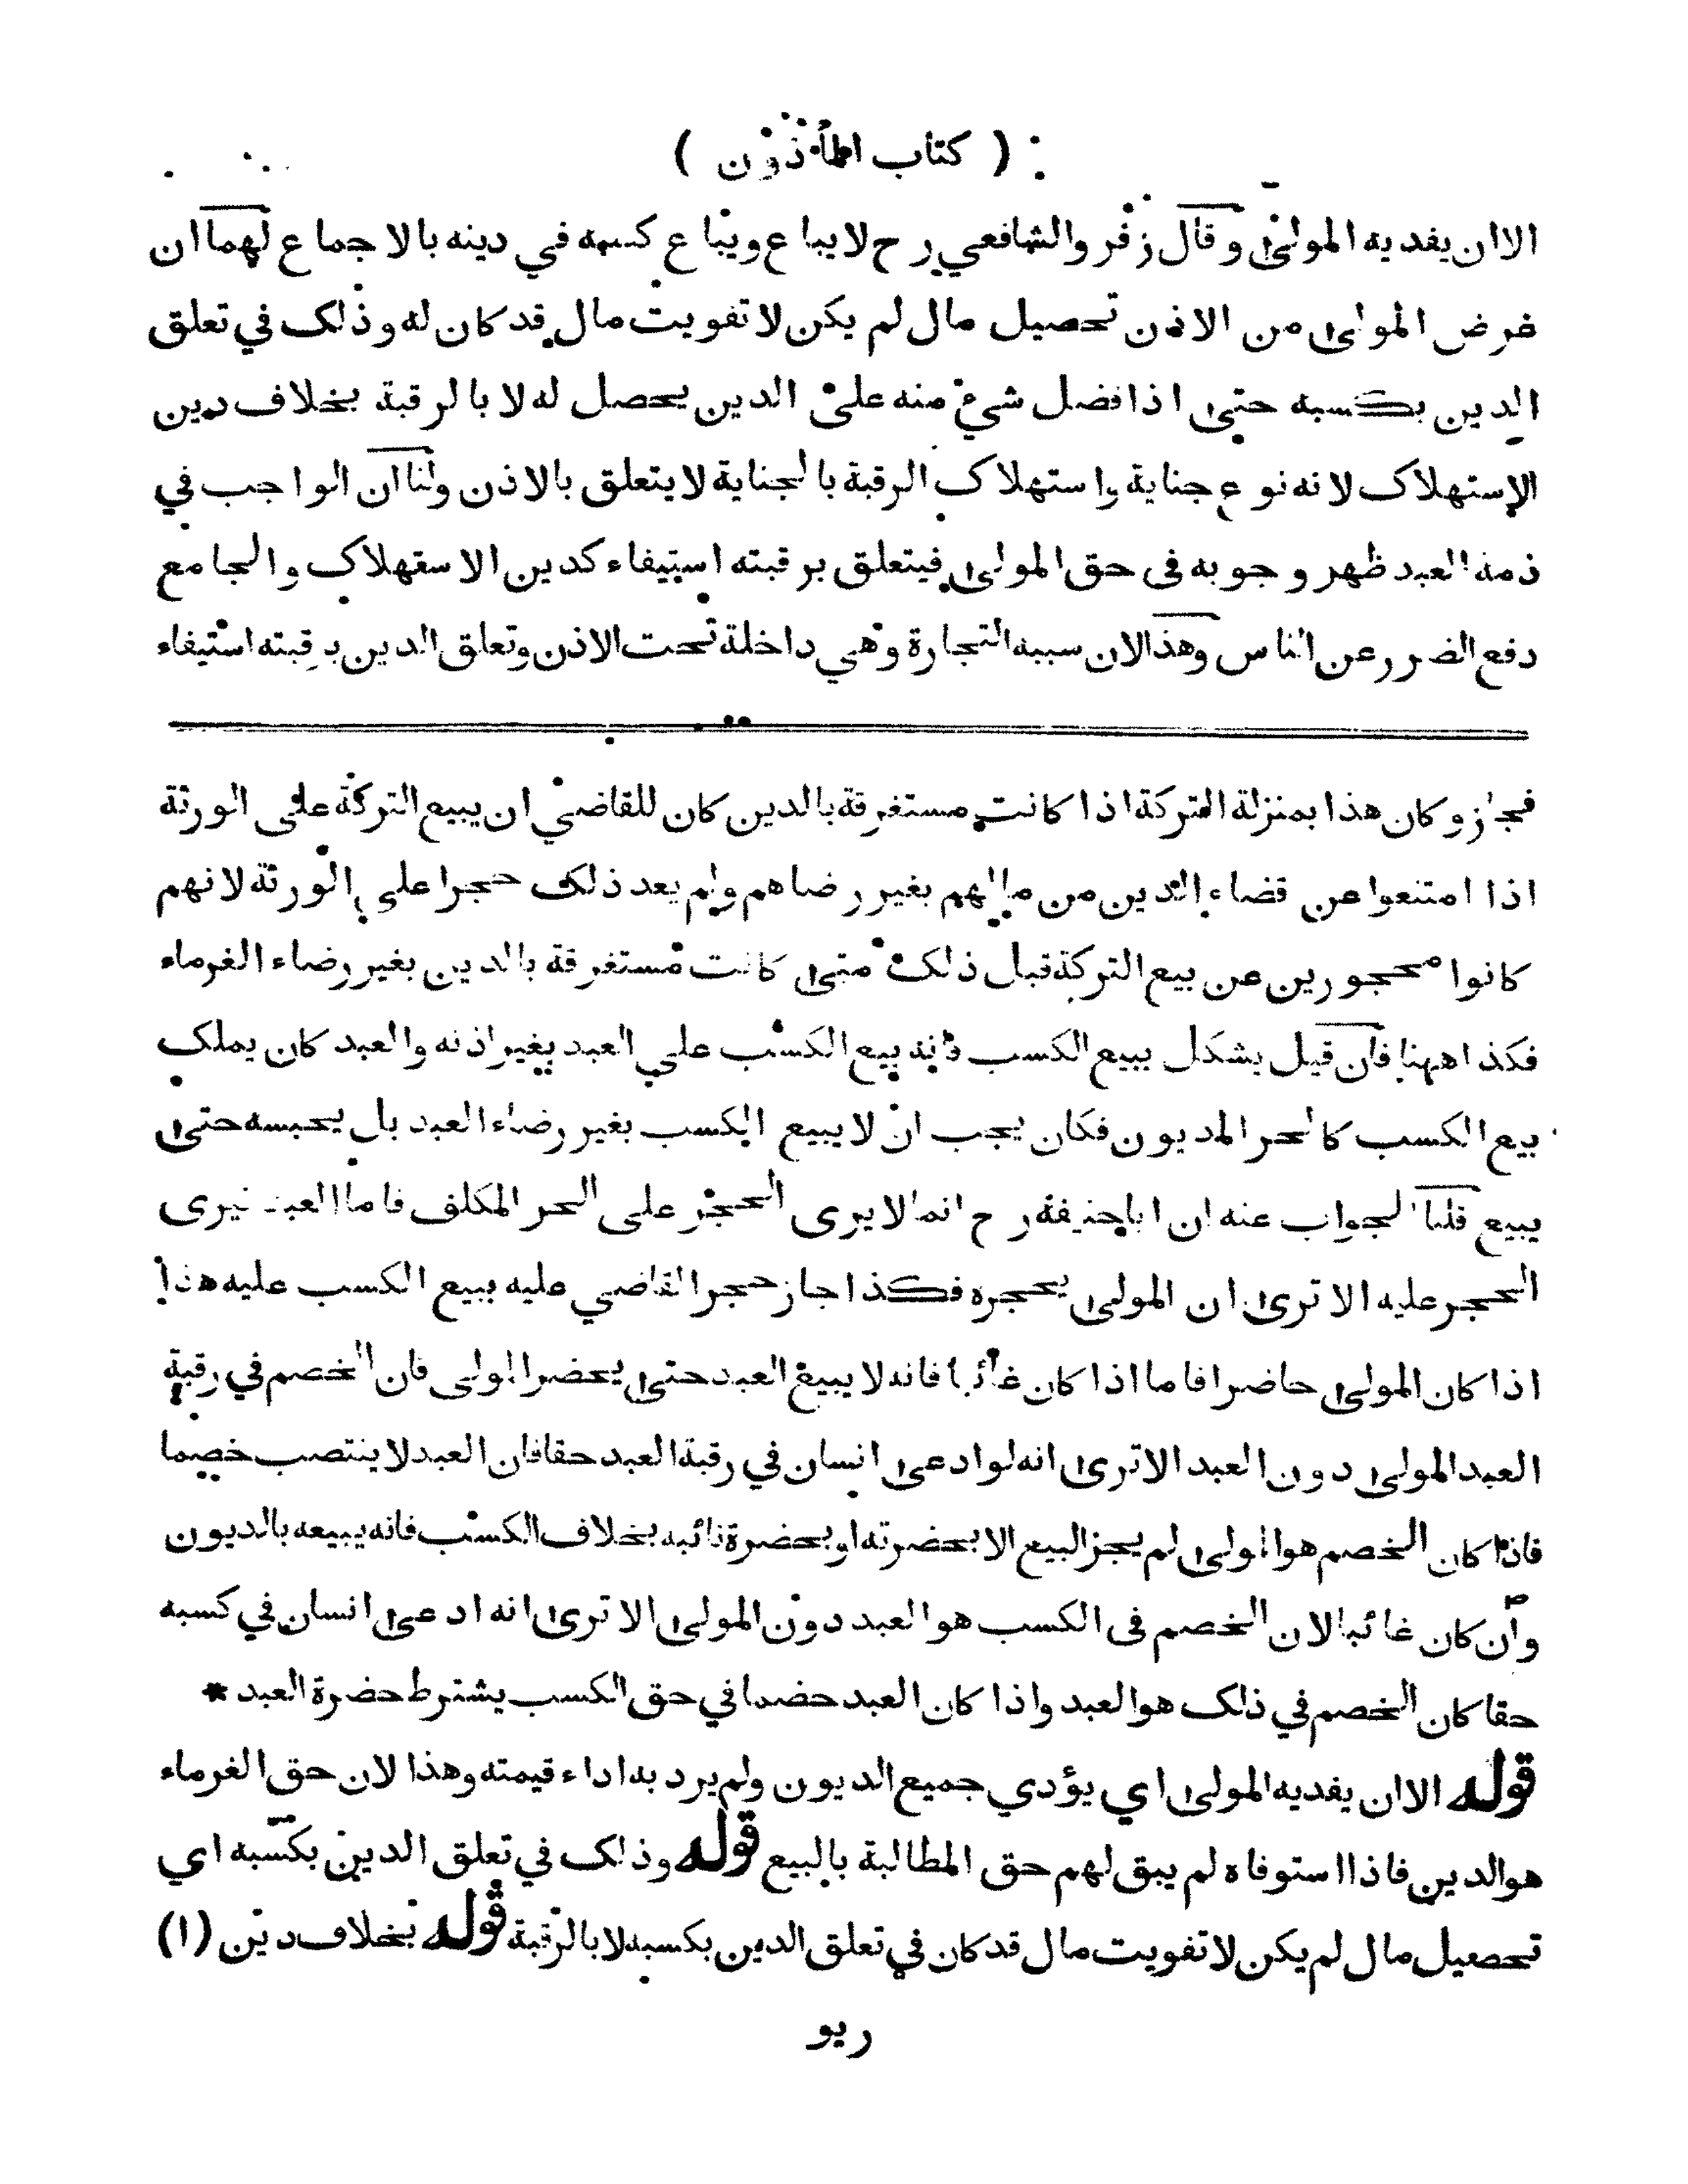 ( كتاب المأذون )
الا ان يفديه المولى وقال زفر والشافعي رح لا يباع ويباع كسبه في دينه بالاجماع لهما ان
غرض المولى من الاذن تحصيل مال لم يكن لا تفويت مال قد كان له وذلك في تعلق
الدين بكسبه حتى اذا فضل شيء منه على الدين يحصل له لا بالرقبة بخلاف دين
الاستهلاك لانه نوع جناية واستهلاك الرقبة بالجناية لا يتعلق بالاذن ولنا ان الواجب في
ذمة العبد ظهر وجوبه في حق المولى فيتعلق برقبته استيفاء كدين الاستهلاك والجامع
دفع الضرر عن الناس وهذا لان سببه التجارة وهي داخلة تحت الاذن وتعلق الدين برقبته استيفاء
فجاز وكان هذا بمنزلة التركة اذا كانت مستغرقة بالدين كان للقاضي ان يبيع التركة على الورثة
اذا امتنعوا عن قضاء الدين من مالهم بغير رضاهم ولم يعد ذلك حجرا على الورثة لانهم
كانوا محجورين عن بيع التركة قبل ذلك متى كانت مستغرقة بالدين بغير رضاء الغرماء
فكذا ههنا فان قيل يشكل ببيع الكسب فانه يبيع الكسب على العبد بغير اذنه والعبد كان يملك
بيع الكسب كالحر المديون فكان يجب ان لا يبيع الكسب بغير رضاء العبد بل يحبسه حتى
يبيع قلنا الجواب عنه ان اباحنيفة رح انما لا يرى الحجر على الحر المكلف فاما العبد فيرى
الحجر عليه الا ترى ان المولى يحجره فكذا جاز حجر القاضي عليه ببيع الكسب عليه هذا
اذا كان المولى حاضرا فاما اذا كان غائبا فانه لا يبيع العبد حتى يحضر المولى فان الخصم في رقبة
العبد المولى دون العبد الا ترى انه لو ادعى انسان في رقبة العبد حقا فان العبد لا ينتصب خصما
فاذا كان الخصم هو المولى لم يجز البيع الا بحضرته او بحضرة نائبه بخلاف الكسب فانه يبيعه بالديون
وان كان غائبا لان الخصم في الكسب هو العبد دون المولى الا ترى انه ادعى انسان في كسبه
حقا كان الخصم في ذلك هو العبد واذا كان العبد خصما في حق الكسب يشترط حضرة العبد *
قوله الا ان يفديه المولى اي يؤدي جميع الديون ولم يرد به اداء قيمته وهذا لان حق الغرماء
هو الدين فاذا استوفاه لم يبق لهم حق المطالبة بالبيع قوله وذلك في تعلق الدين بكسبه اي
تحصيل مال لم يكن لا تفويت مال قد كان في تعلق الدين بكسبه لا بالرقبة قوله بخلاف دين (١)
ريو